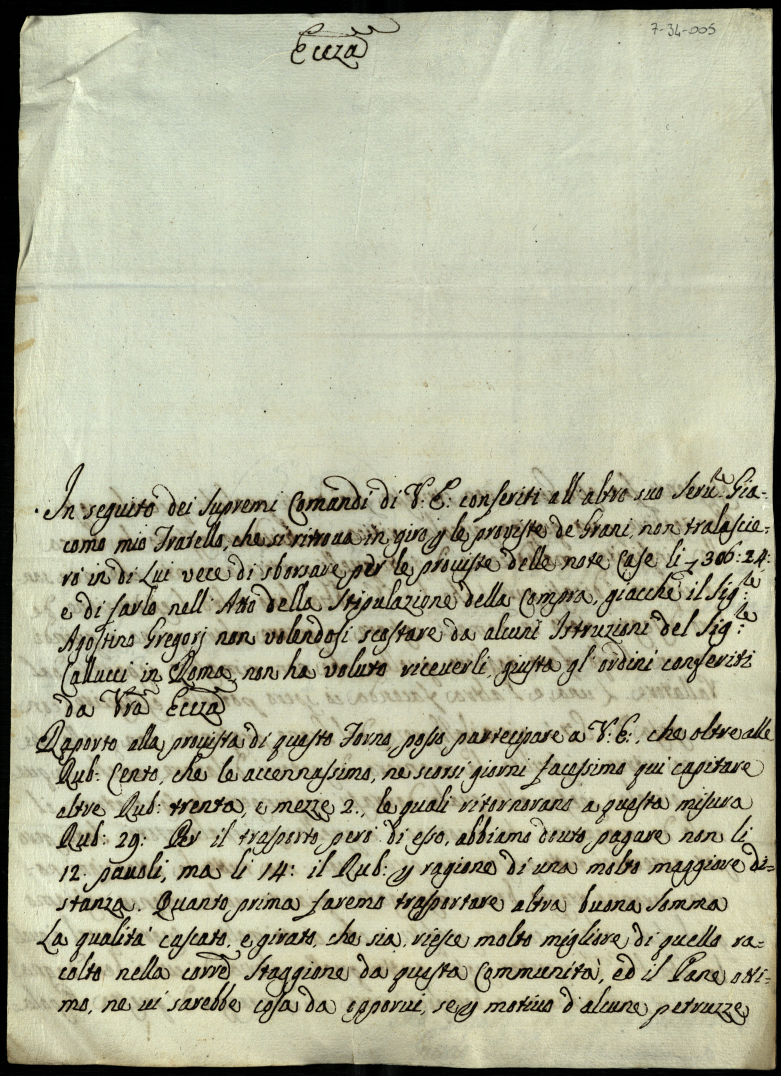 7-34-005
Eccza
In seguito dei Supremi Comandi di V: E: conferiti all'altro suo Serv:re Gia-
como mio Fratello, che si ritrova in giro p le proviste de Grani, non tralascie-
rò in di Lui vece di sborsare per le proviste delle note Case li 306:24:
e di farlo nell'Atto della Stipulazione della Compra, giacchè il Sig:re
Agostino Gregorj non volendosi scostare da alcuni Istruzioni del Sig:re
Callucci in Roma, non ha voluto riceverli, giusta gl'ordini conferiti
da Vra Eccza
Raporto alla provista di questo Forno, posso partecipare a V: E:, che oltre alle
Rub: Cento, che le accennassimo, ne scorsi giorni facessimo qui capitare
altre Rub: trenta, e mezze 2., le quali ritornorano a questa misura
Rub: 29: Per il trasporto però di esso, abbiamo douto pagare non li
12. pauoli, ma li 14: il Rub: p ragione di una molto maggiore di=
stanza. Quanto prima faremo trasportare altra buona Somma
La qualità cascato, e girato, che sia, riesce molto migliore di quello ra=
colto nella corre Staggione da questa Communità, ed il Pane otti=
mo, ne vi sarebbe cosa da opporvi, se p motivo d'alcune petruzze